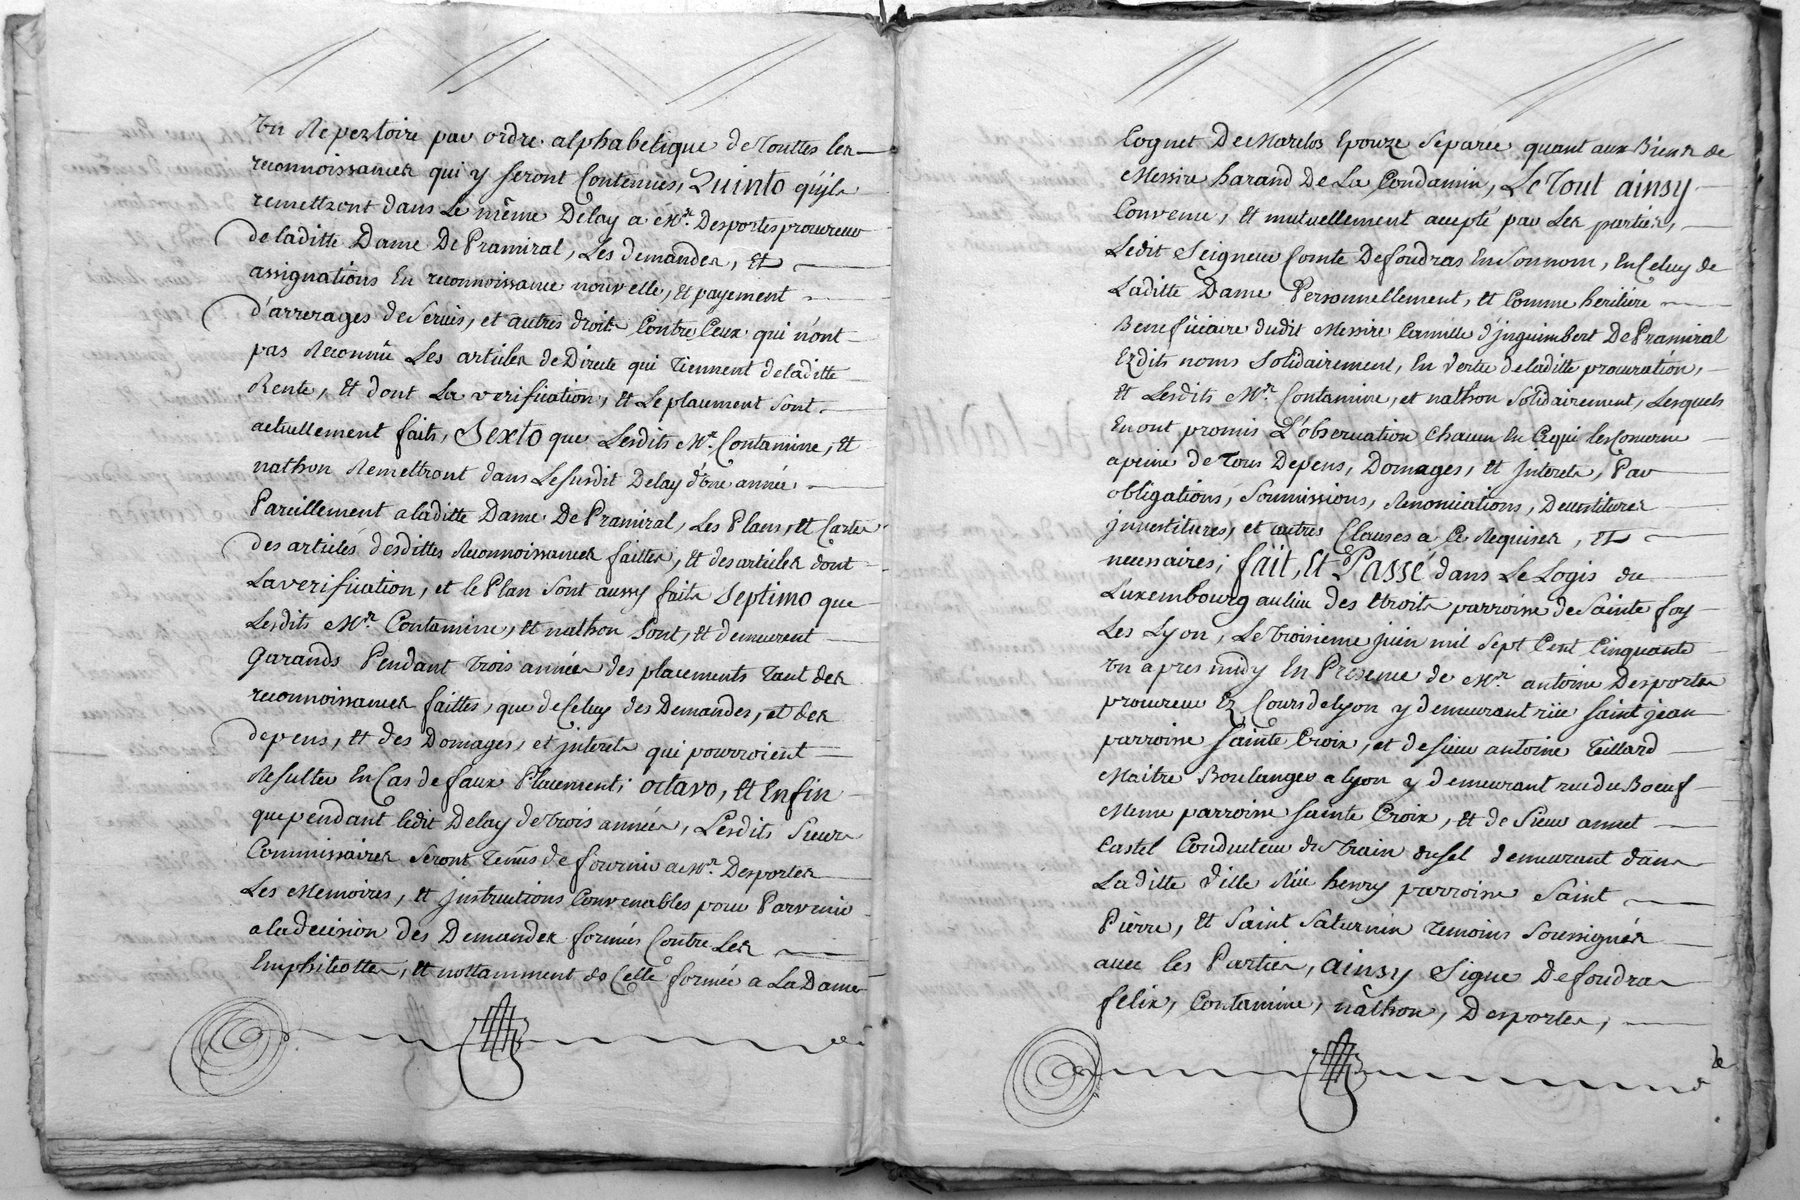 un Repertoire par ordre alphabetique de Touttes les
reconnoissances qui y seront Contenues, Quinto qu'jls
remettront dans Le même Delay a Mr. Desportes procureur
de laditte Dame De Pramiral, Les demandes, Et
assignations En reconnoissance nouvelle, Et payement
d'arrerages de Servis, et autres droits Contre Ceux qui n'ont
pas Reconnû Les articles de Directe qui Tiennent de laditte
Rente, Et dont La verification, Et Le placement sont
actuellement faits, Sexto que Lesdits Mrs. Contamine, Et
nathon Remettront dans Le susdit Delay d'une année
Pareillement a laditte Dame De Pramiral, Les Plans, Et Cartes
des articles desdittes Reconnoissances faittes, Et des articles dont
La verification, et le Plan sont aussy faits Septimo que
Lesdits Mrs. Contamine, Et nathon sont, Et demeurent
Garands Pendant trois années des placements Tant des
reconnoissances faittes, que de Celuy des Demandes, et des
depens, Et des Domages, et jnterets qui pourroient
Resulter En Cas de faux Placement; octavo, Et Enfin
que pendant ledit Delay de trois années, Lesdits Sieurs
Commissaires Seront Tenûs de fournir a Mr. Desportes
Les Memoires, Et jnstructions Convenables pour Parvenir
a la decision des Demandes formées Contre Les
Emphiteottes, Et nottamment de Celle formée a La Dame
Cognet De Marclos Epouze Separée quant aux Biens de
Messire harand De La Condamin, Le Tout ainsy
Convenu, Et mutuellement accepté par Les parties,
Ledit Seigneur Comte Defoudras En Son nom, En Celuy de
Laditte Dame Personnellement, Et Comme heritiere
Beneficiaire dudit Messire Camille d'jnguimbert De Pramiral
Ezdits noms Solidairement, En Vertu de laditte procuration,
Et Lesdits Mrs. Contamine, et nathon Solidairement, Lesquels
En ont promis L'observation Chacun En Ce qui les Concerne
a peine de Tous Depens, Domages, Et jnterets, Par
obligations, Soumissions, Renonciations, Devestitures
jnvestitures, et autres Clauses a Ce Requises, Et
necessaires; fait, Et Passé dans Le Logis du
Luxembourg au lieu des Etroits parroisse de Sainte foy
Les Lyon, Le Troisieme juin mil Sept Cent Cinquante
un apres midy En Presence de Mr. antoine Desportes
procureur Ez Cours de lyon y demeurant rüe Saint jean
parroisse Sainte Croix, et de sieur antoine Teillard
Maitre Boulanger a lyon y demeurant rue du Boeuf
Meme parroisse Sainte Croix, Et de Sieur annet
Castel Conducteur du Train du sel demeurant dans
Laditte Ville Rüe henry parroisse Saint
Pierre, Et Saint Saturnin Temoins Soussignés
avec les Parties, ainsy Signé Defoudras
felix, Contamine, nathon, Desportes,
de